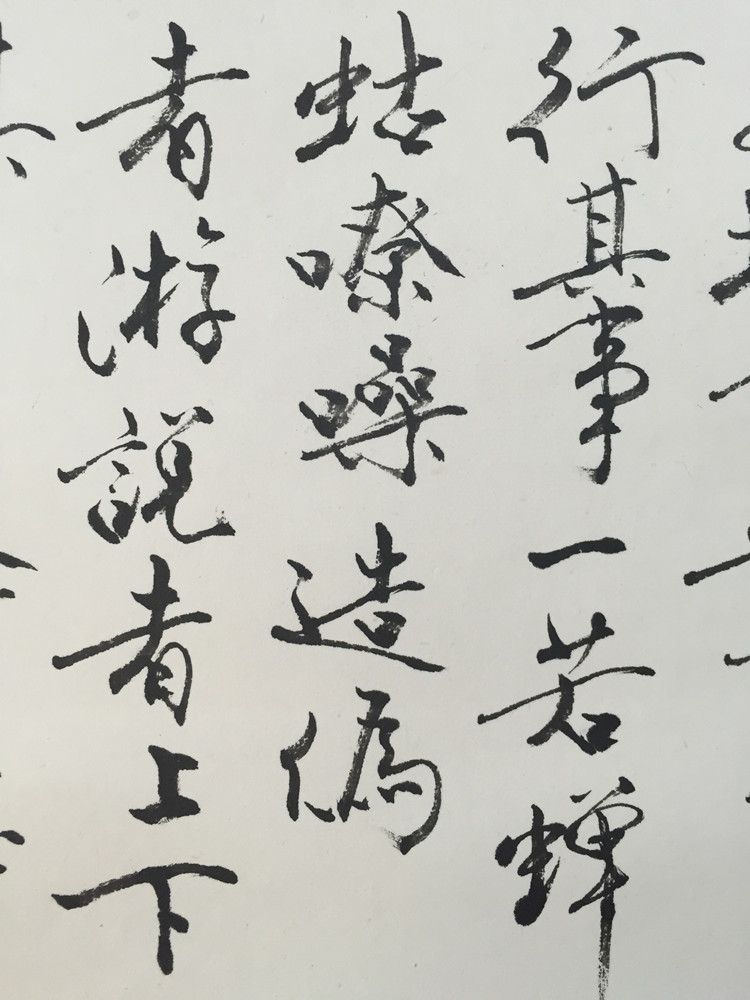 行其事一若蟬
蛄嘹噪造偽
者游說者上下